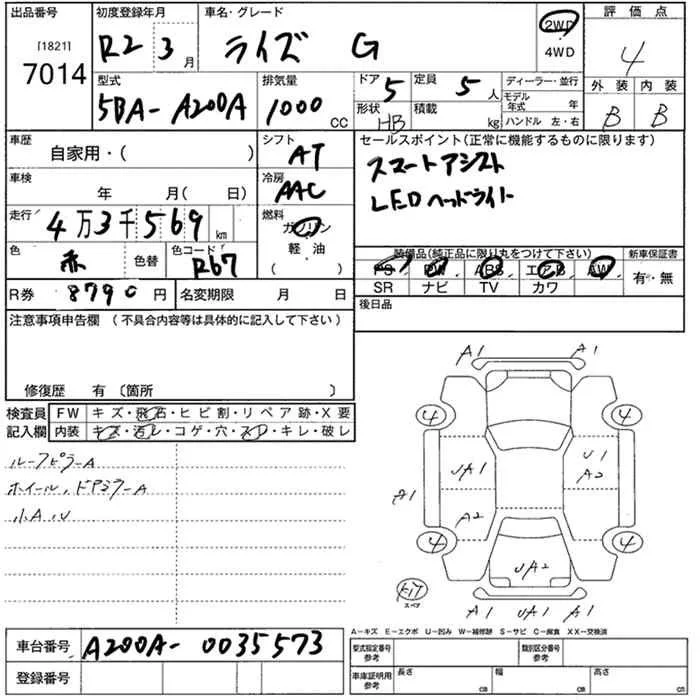 出品番号 初度登録年月 車名・グレード 評価点
[1821] 7014 R2 3月 ライズ G 2WD 4WD 4
型式 排気量 ドア 5 定員 5人 ディーラー・並行 外装 内装
5BA-A200A 1000 CC 形状 HB 積載 kg モデル年式 年 B B
ハンドル 左・右
車歴 自家用・( ) シフト AT セールスポイント(正常に機能するものに限ります)
スマートアシスト
LEDヘッドライト
車検 年 月( 日) 冷房 AAC
走行 4万3千569km 燃料 ガソリン 軽・油 ( )
色 赤 色替 色コード R67
装備品(純正品に限り丸をつけて下さい) 新車保証書
PS PW ABS エアB AW 有・無
SR ナビ TV カワ
R券 8790円 名変期限 月 日 後日品
注意事項申告欄 (不具合内容等は具体的に記入して下さい)
修復歴 有 〔箇所 〕
検査員記入欄 FW キズ・飛石・ヒビ割・リペア跡・X要
内装 キズ・汚レ・コゲ・穴・スレ・キレ・破レ
ルーフピラーA
ホイール、ドアミラーA
小A、U
A1 A1
4 4
UA1 U1 A2
A1 A2
4 4
UA2
スペア
A1 UA1 A1
A-キズ E-エクボ U-凹み W-補修跡 S-サビ C-腐食 XX-交換済
車台番号 A200A-0035573
型式指定番号 参考 類別区分番号 参考
登録番号
車庫証明用 参考 長さ cm 幅 cm 高さ cm